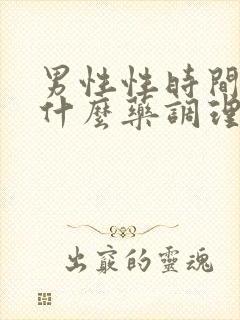 男性性時間
什麼藥調理
出竅的靈魂